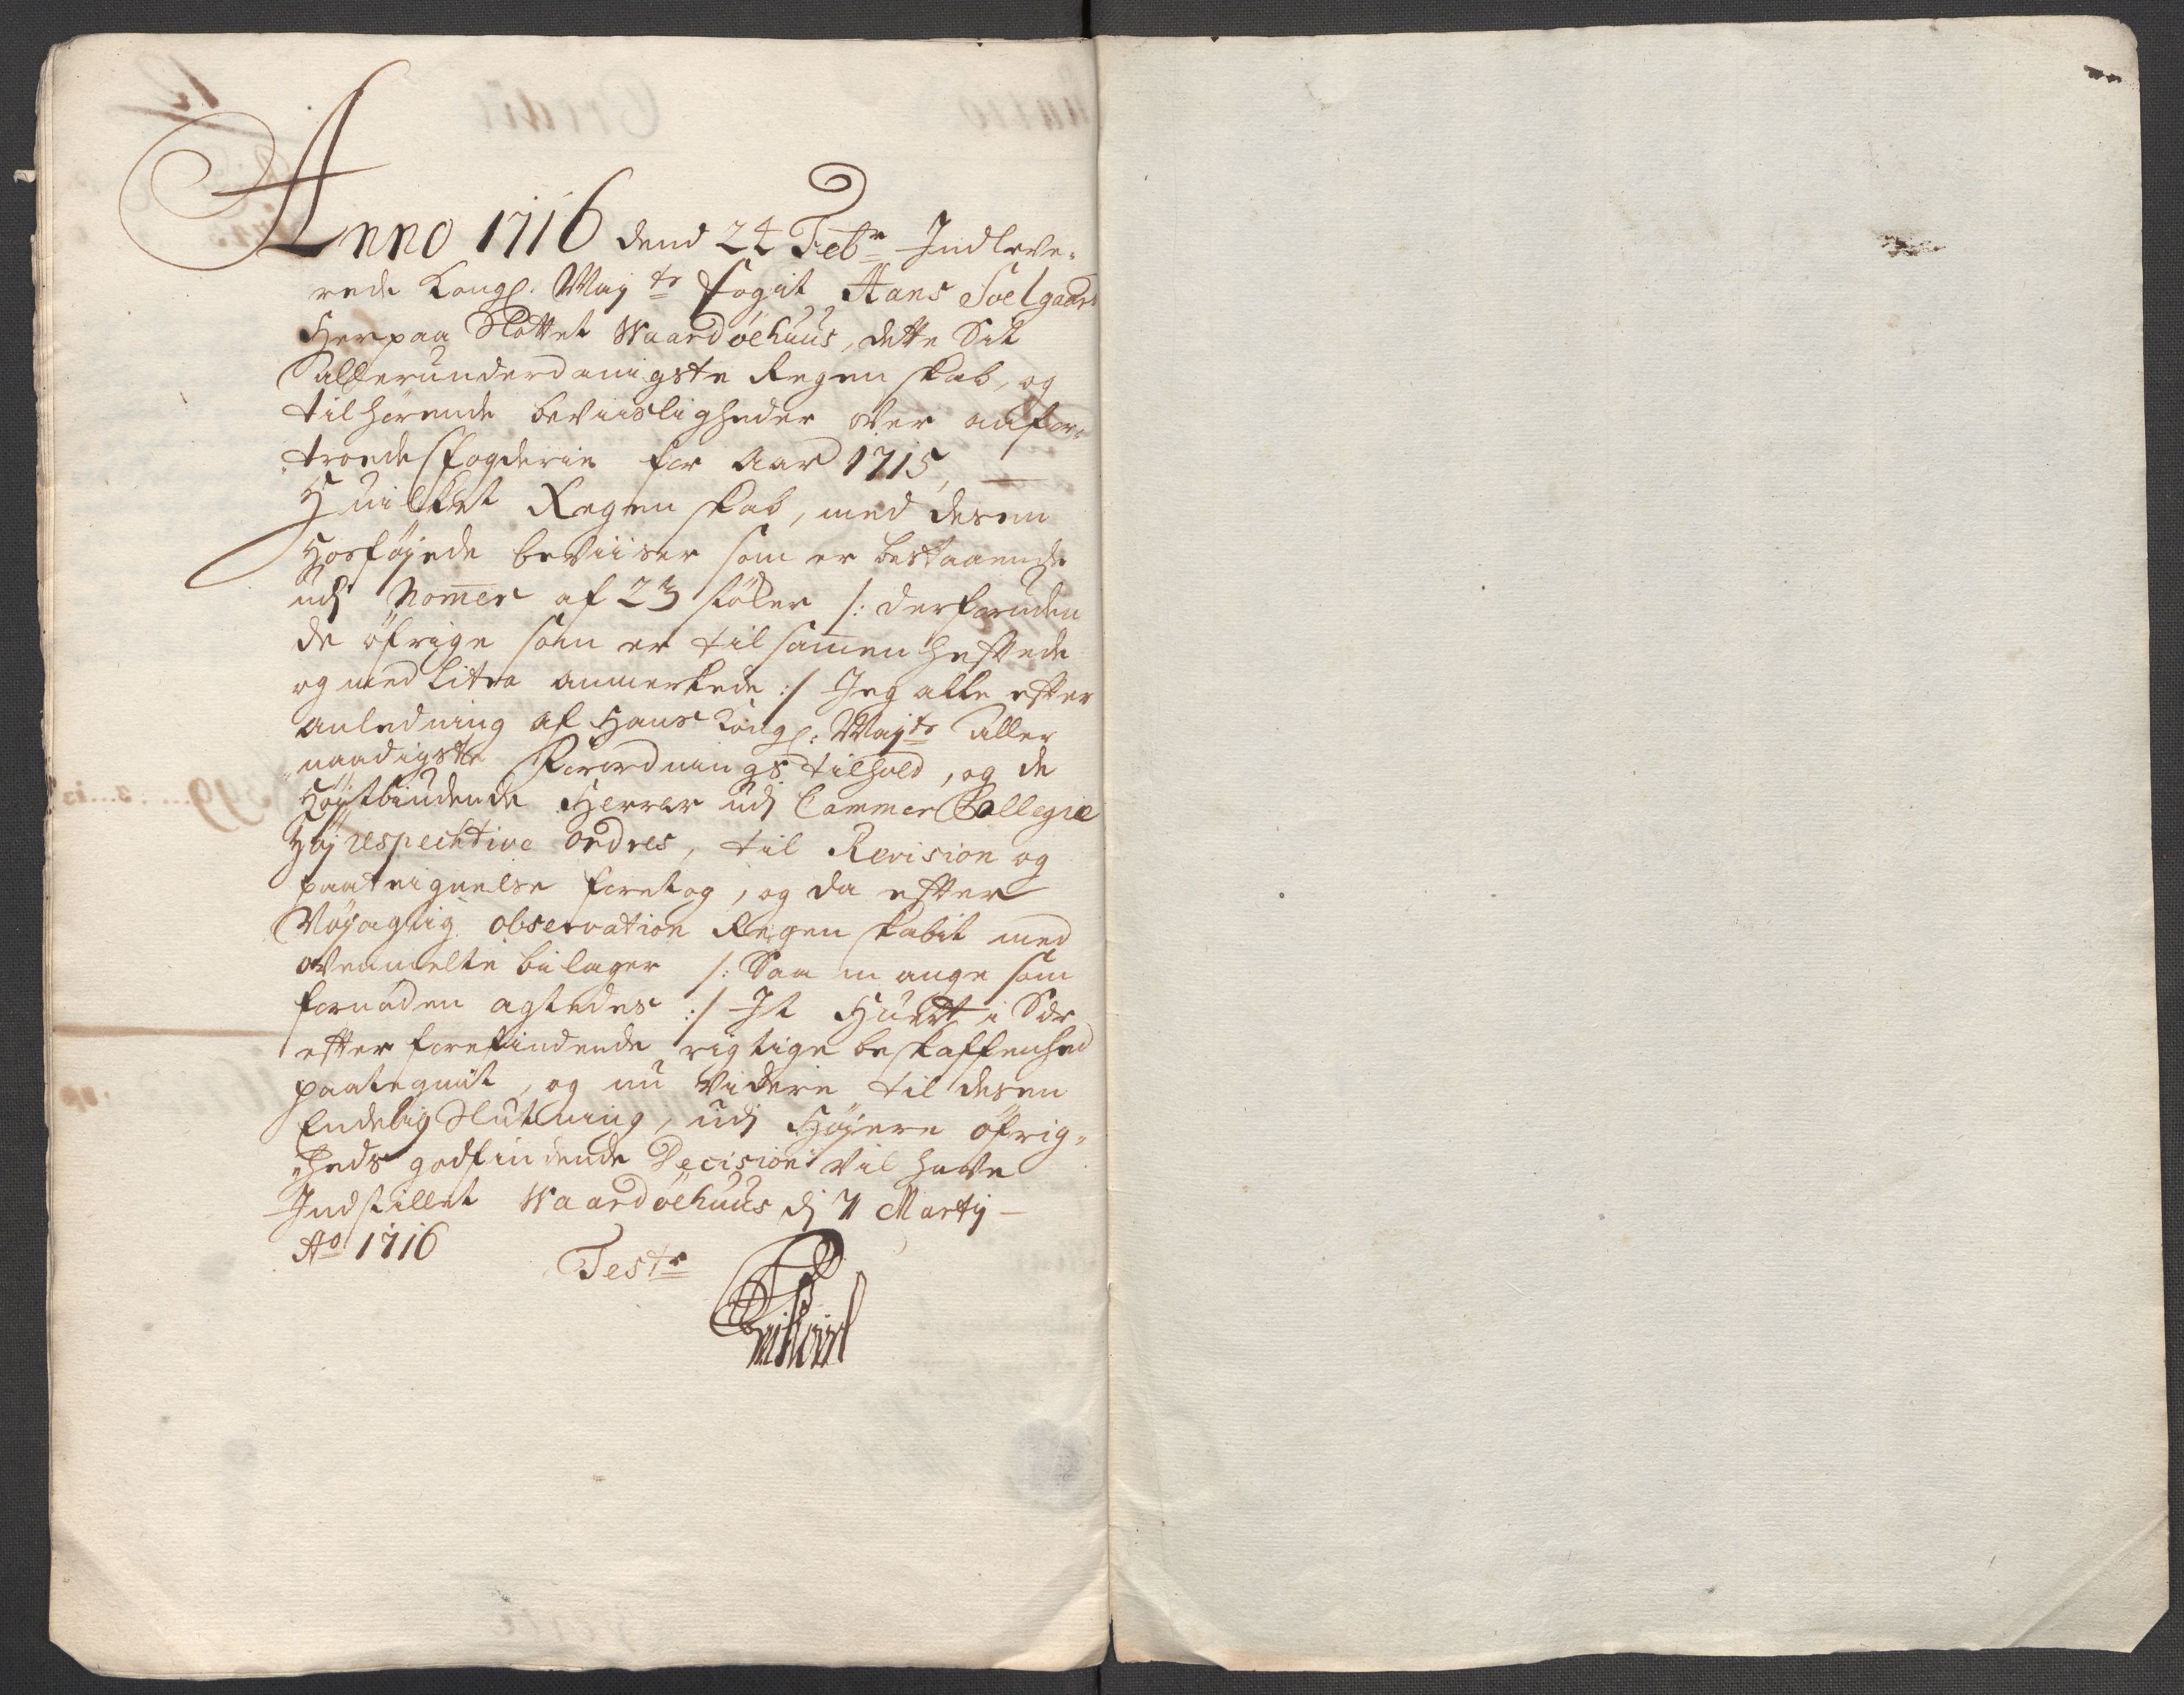 Anno 1716 dend 24 Febr Indleve-
rede Kongl. Mayts fogit Hans Soelgaard
Herpaa Slottet Waardøehuus, dette Sit
allerunderdanigste Regenskab, og
tilhørende beviisligheder over anfor-
troede fogderie for Aar 1715,
Huilket Regenskab, med desen
hosføyede beviiser som er bestaaende
udj Nomer af 23 støker /: derforuden
de øfrige som er tilsamen heftede
og med Litra anmerkede :/ Jeg alle efter
anledning af Hans Kongl: Mayts aller
naadigste Forordnings tilhold, og de
Høystbiudende Herrer udj Cammer Collegie
Høj respecktive ordres, til Revision og
paateignelse foretog, og da efter
Nøyagtig observation Regenskabit med
ovenmelte bilager /: Saa mange som
fornøden agtedes :/ It Huert i Sær
efter forefindende rigtige beskaffenhed
paategnit, og nu videre til desen
Endelig Slutning, udj Høyere øfrig-
heds godfindende Decision vil have
Indstillet Waardøehuus dj 7 Martij
Ao 1716
Testr